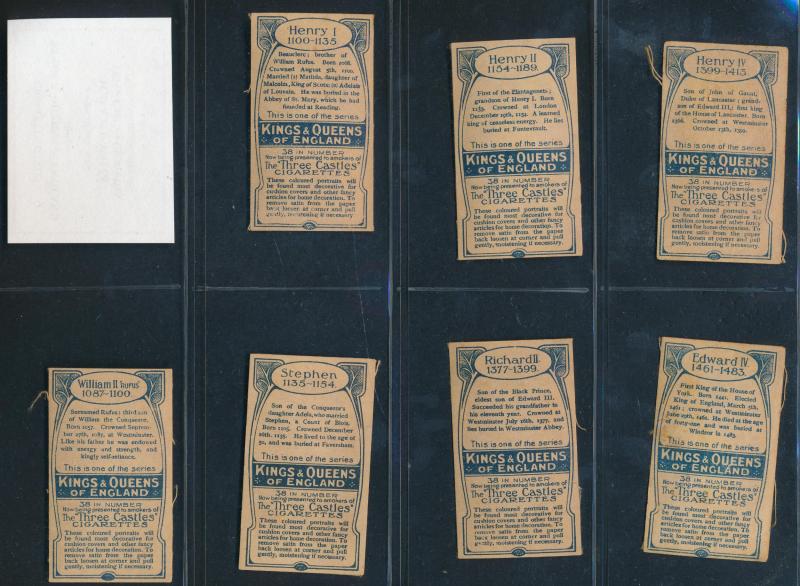 Henry I
1100-1135.
Beauclerc; brother of
William Rufus. Born 1068.
Crowned August 5th, 1100.
Married (1) Matilda, daughter of
Malcolm, King of Scots; (2) Adelais
of Louvain. He was buried in the
Abbey of St. Mary, which he had
founded at Reading.
This is one of the series
KINGS & QUEENS
OF ENGLAND
38 IN NUMBER
Now being presented to smokers of
The "Three Castles"
CIGARETTES
These coloured portraits will
be found most decorative for
cushion covers and other fancy
articles for home decoration. To
remove satin from the paper
back loosen at corner and pull
gently, moistening if necessary
Henry II
1154-1189.
First of the Plantagenets;
grandson of Henry I. Born
1133. Crowned at London
December 19th, 1154. A learned
king of ceaseless energy. He lies
buried at Fontevrault.
This is one of the series
KINGS & QUEENS
OF ENGLAND
38 IN NUMBER
Now being presented to smokers of
The "Three Castles"
CIGARETTES
These coloured portraits will
be found most decorative for
cushion covers and other fancy
articles for home decoration. To
remove satin from the paper
back loosen at corner and pull
gently, moistening if necessary.
Henry IV
1399-1413.
Son of John of Gaunt,
Duke of Lancaster; grand-
son of Edward III; first king
of the House of Lancaster. Born
1366. Crowned at Westminster
October 13th, 1399.
This is one of the series
KINGS & QUEENS
OF ENGLAND
38 IN NUMBER
Now being presented to smokers of
The "Three Castles"
CIGARETTES
These coloured portraits will
be found most decorative for
cushion covers and other fancy
articles for home decoration. To
remove satin from the paper
back loosen at corner and pull
gently, moistening if necessary.
William II "rufus"
1087-1100.
Surnamed Rufus; third son
of William the Conqueror.
Born 1057. Crowned Septem-
ber 27th, 1087, at Westminster.
Like his father he was endowed
with energy and strength, and
kingly self-reliance.
This is one of the series
KINGS & QUEENS
OF ENGLAND
38 IN NUMBER
Now being presented to smokers of
The "Three Castles"
CIGARETTES
These coloured portraits will
be found most decorative for
cushion covers and other fancy
articles for home decoration. To
remove satin from the paper
back loosen at corner and pull
gently, moistening if necessary.
Stephen
1135-1154.
Son of the Conqueror's
daughter Adela, who married
Stephen, a Count of Blois.
Born 1105. Crowned December
26th, 1135. He lived to the age of
50, and was buried at Faversham.
This is one of the series
KINGS & QUEENS
OF ENGLAND
38 IN NUMBER
Now being presented to smokers of
The "Three Castles"
CIGARETTES
These coloured portraits will
be found most decorative for
cushion covers and other fancy
articles for home decoration. To
remove satin from the paper
back loosen at corner and pull
gently, moistening if necessary.
Richard II.
1377-1399.
Son of the Black Prince,
eldest son of Edward III.
Succeeded his grandfather in
his eleventh year. Crowned at
Westminster July 16th, 1377, and
lies buried in Westminster Abbey.
This is one of the series
KINGS & QUEENS
OF ENGLAND
38 IN NUMBER
Now being presented to smokers of
The "Three Castles"
CIGARETTES
These coloured portraits will
be found most decorative for
cushion covers and other fancy
articles for home decoration. To
remove satin from the paper
back loosen at corner and pull
gently, moistening if necessary.
Edward IV
1461-1483.
First King of the House of
York. Born 1441. Elected
King of England, March 5th,
1461; crowned at Westminster
June 29th, 1461. He died at the age
of forty-one and was buried at
Windsor in 1483.
This is one of the series
KINGS & QUEENS
OF ENGLAND
38 IN NUMBER
Now being presented to smokers of
The "Three Castles"
CIGARETTES
These coloured portraits will
be found most decorative for
cushion covers and other fancy
articles for home decoration. To
remove satin from the paper
back loosen at corner and pull
gently, moistening if necessary.